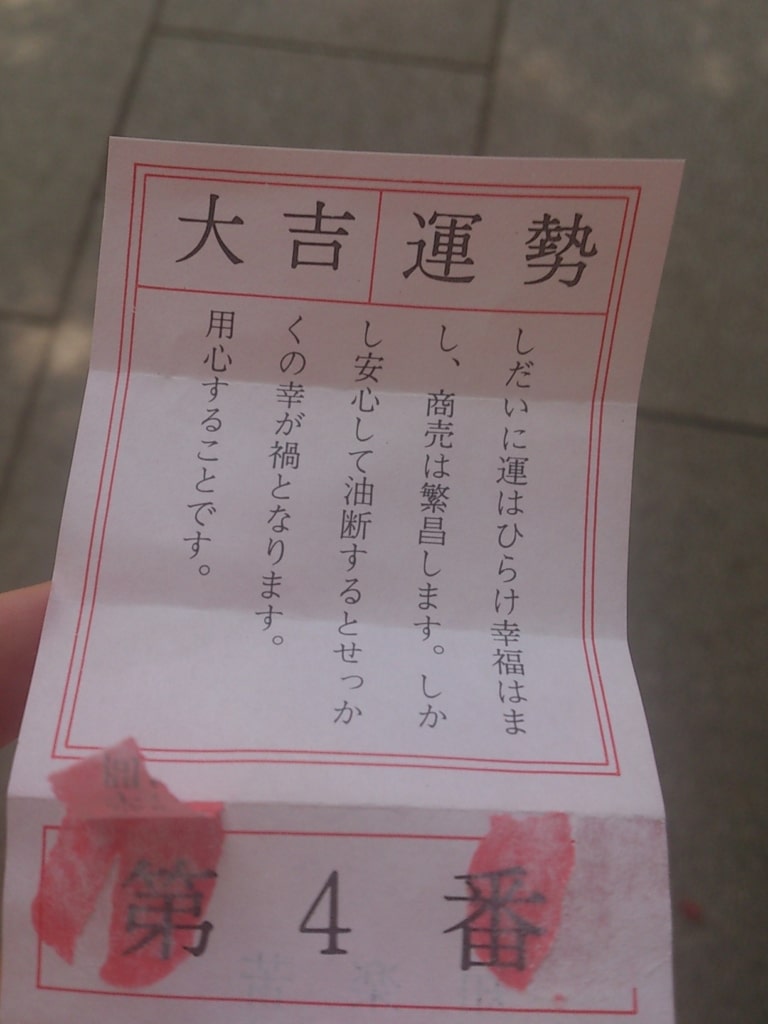 大吉 運勢
しだいに運はひらけ幸福はま
し、商売は繁昌します。しか
し安心して油断するとせっか
くの幸が禍となります。
用心することです。
第4番